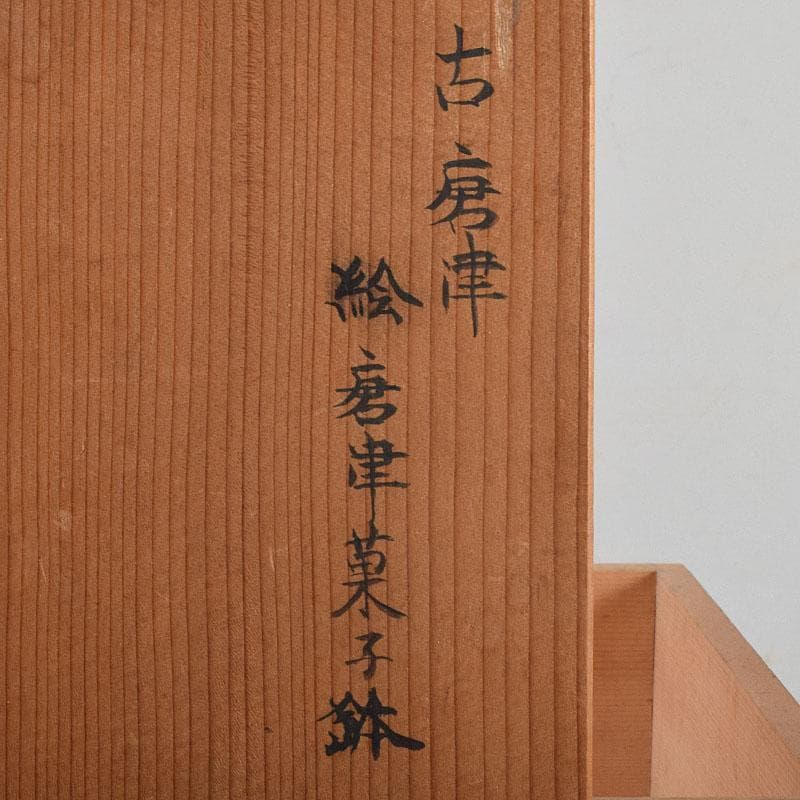 古唐津
絵唐津菓子鉢